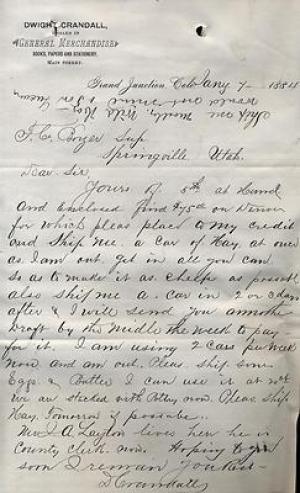 DWIGHT CRANDALL,
DEALER IN
GENERAL MERCHANDISE
BOOKS, PAPERS AND STATIONERY.
MAIN STREET.
Grand Junction, Colo Jany 7 - 1884
F. C. Boyer Sup
Springville Utah.
Dear Sir,
Yours of 5th at Hand
and Enclosed find $75 00 on Denver
for which pleas place to my credit
and Ship me a car of Hay at once
as I am out get in all you can
so as to made it as cheap as possabl
also ship me a car in 2 or 3 days
after & I will send you annothe
Draft by the midle the week to pay
for it. I am using 2 cars per week
now and am out. Pleas ship some
Eggs & Butter I can use it at
We are stacked with now Pleas Ship
Hay tomorrow if possabe.
Mr J. A. Layton lives here he is
County clerk now. Hoping to
soon I remain Yours
D Crandall